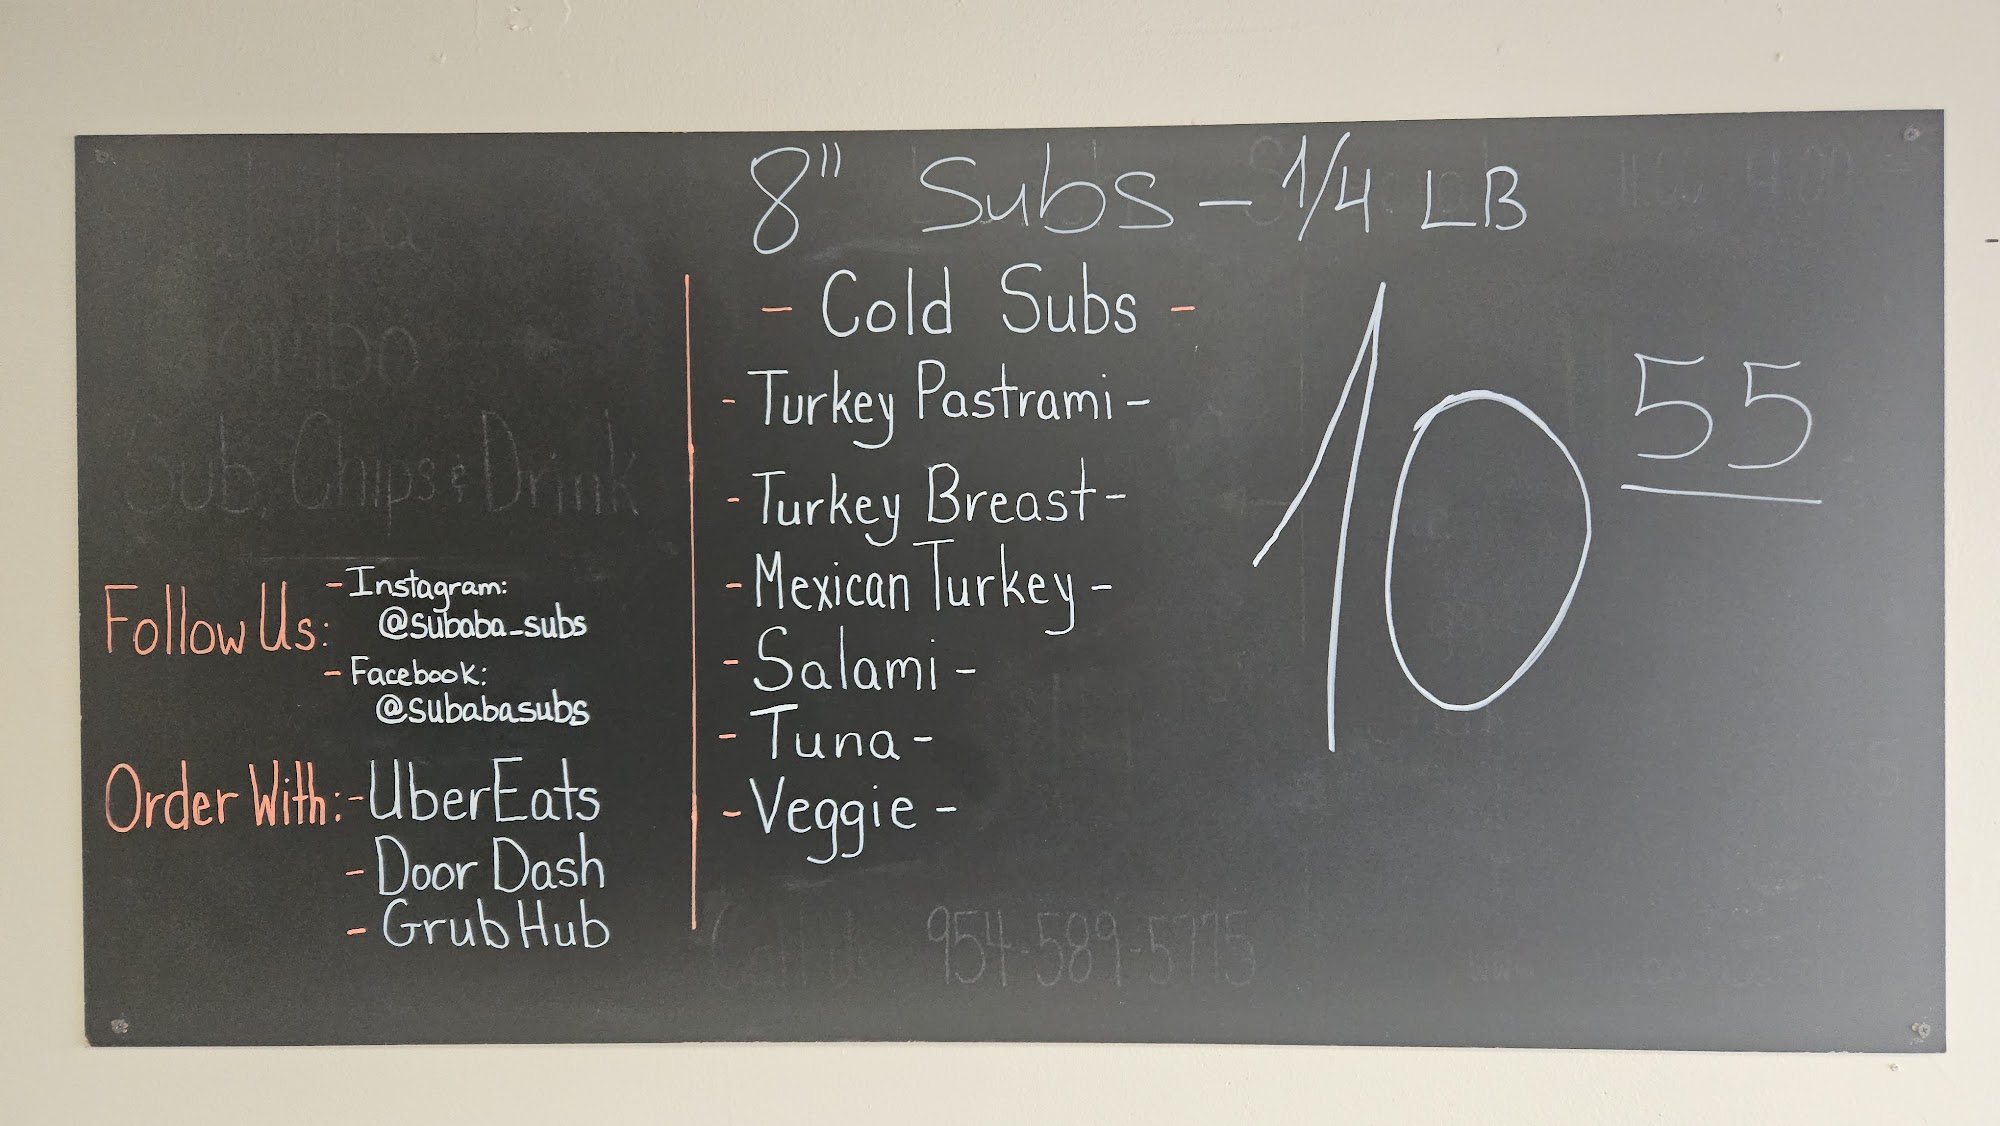 8" Subs - 1/4 LB
- Cold Subs -
- Turkey Pastrami -
- Turkey Breast -
- Mexican Turkey -
- Salami -
- Tuna -
- Veggie -
10 55
Sub, Chips & Drink
Follow Us: - Instagram:
@subaba_subs
- Facebook:
@subabasubs
Order With: - UberEats
- Door Dash
- GrubHub
Call Us 954-589-5775